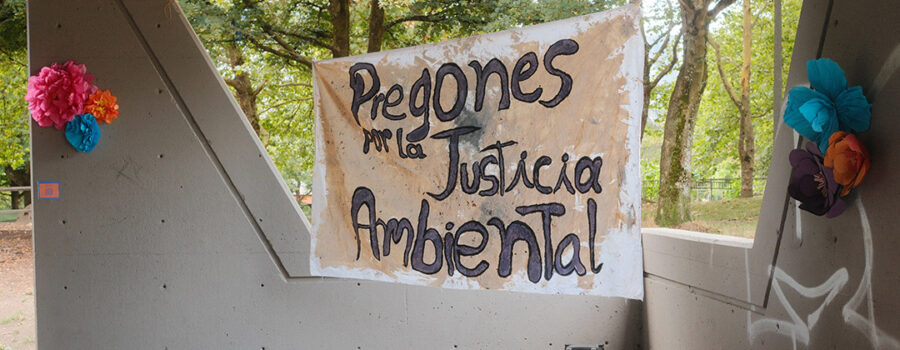 Pregones
por la
Justicia
Ambiental